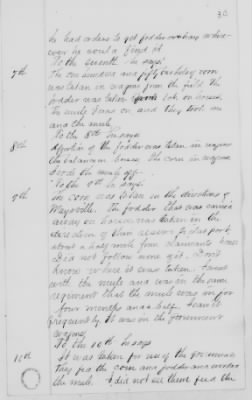 30
he had orders to get fodder & corn where
ever he could find it.
To the seventh he says
7th The one hundred and fifty bushels of corn
was taken in wagons from the field. The
fodder was taken from lot on horses,
the mule I was on and they took me
and the mule.
To the 8th he says
8th A portion of the fodder was taken in wagons
the balance on horses. The corn in wagons
the mule off.
To the 9th he says
9th The corn was taken in the direction of
Maysville. The fodder that was carried
away on horses was taken in the
direction of
about a half mile from claimants house
I did not follow and I don't
know where it was taken. I went
with the mule and was in the same
regiment that the mule was in for
four months and a half. I saw it
frequently. It was in the government
wagons.
To the 10th he says
10th It was taken for use of the government
they fed the corn and fodder and worked
the mule. I did not see them feed the